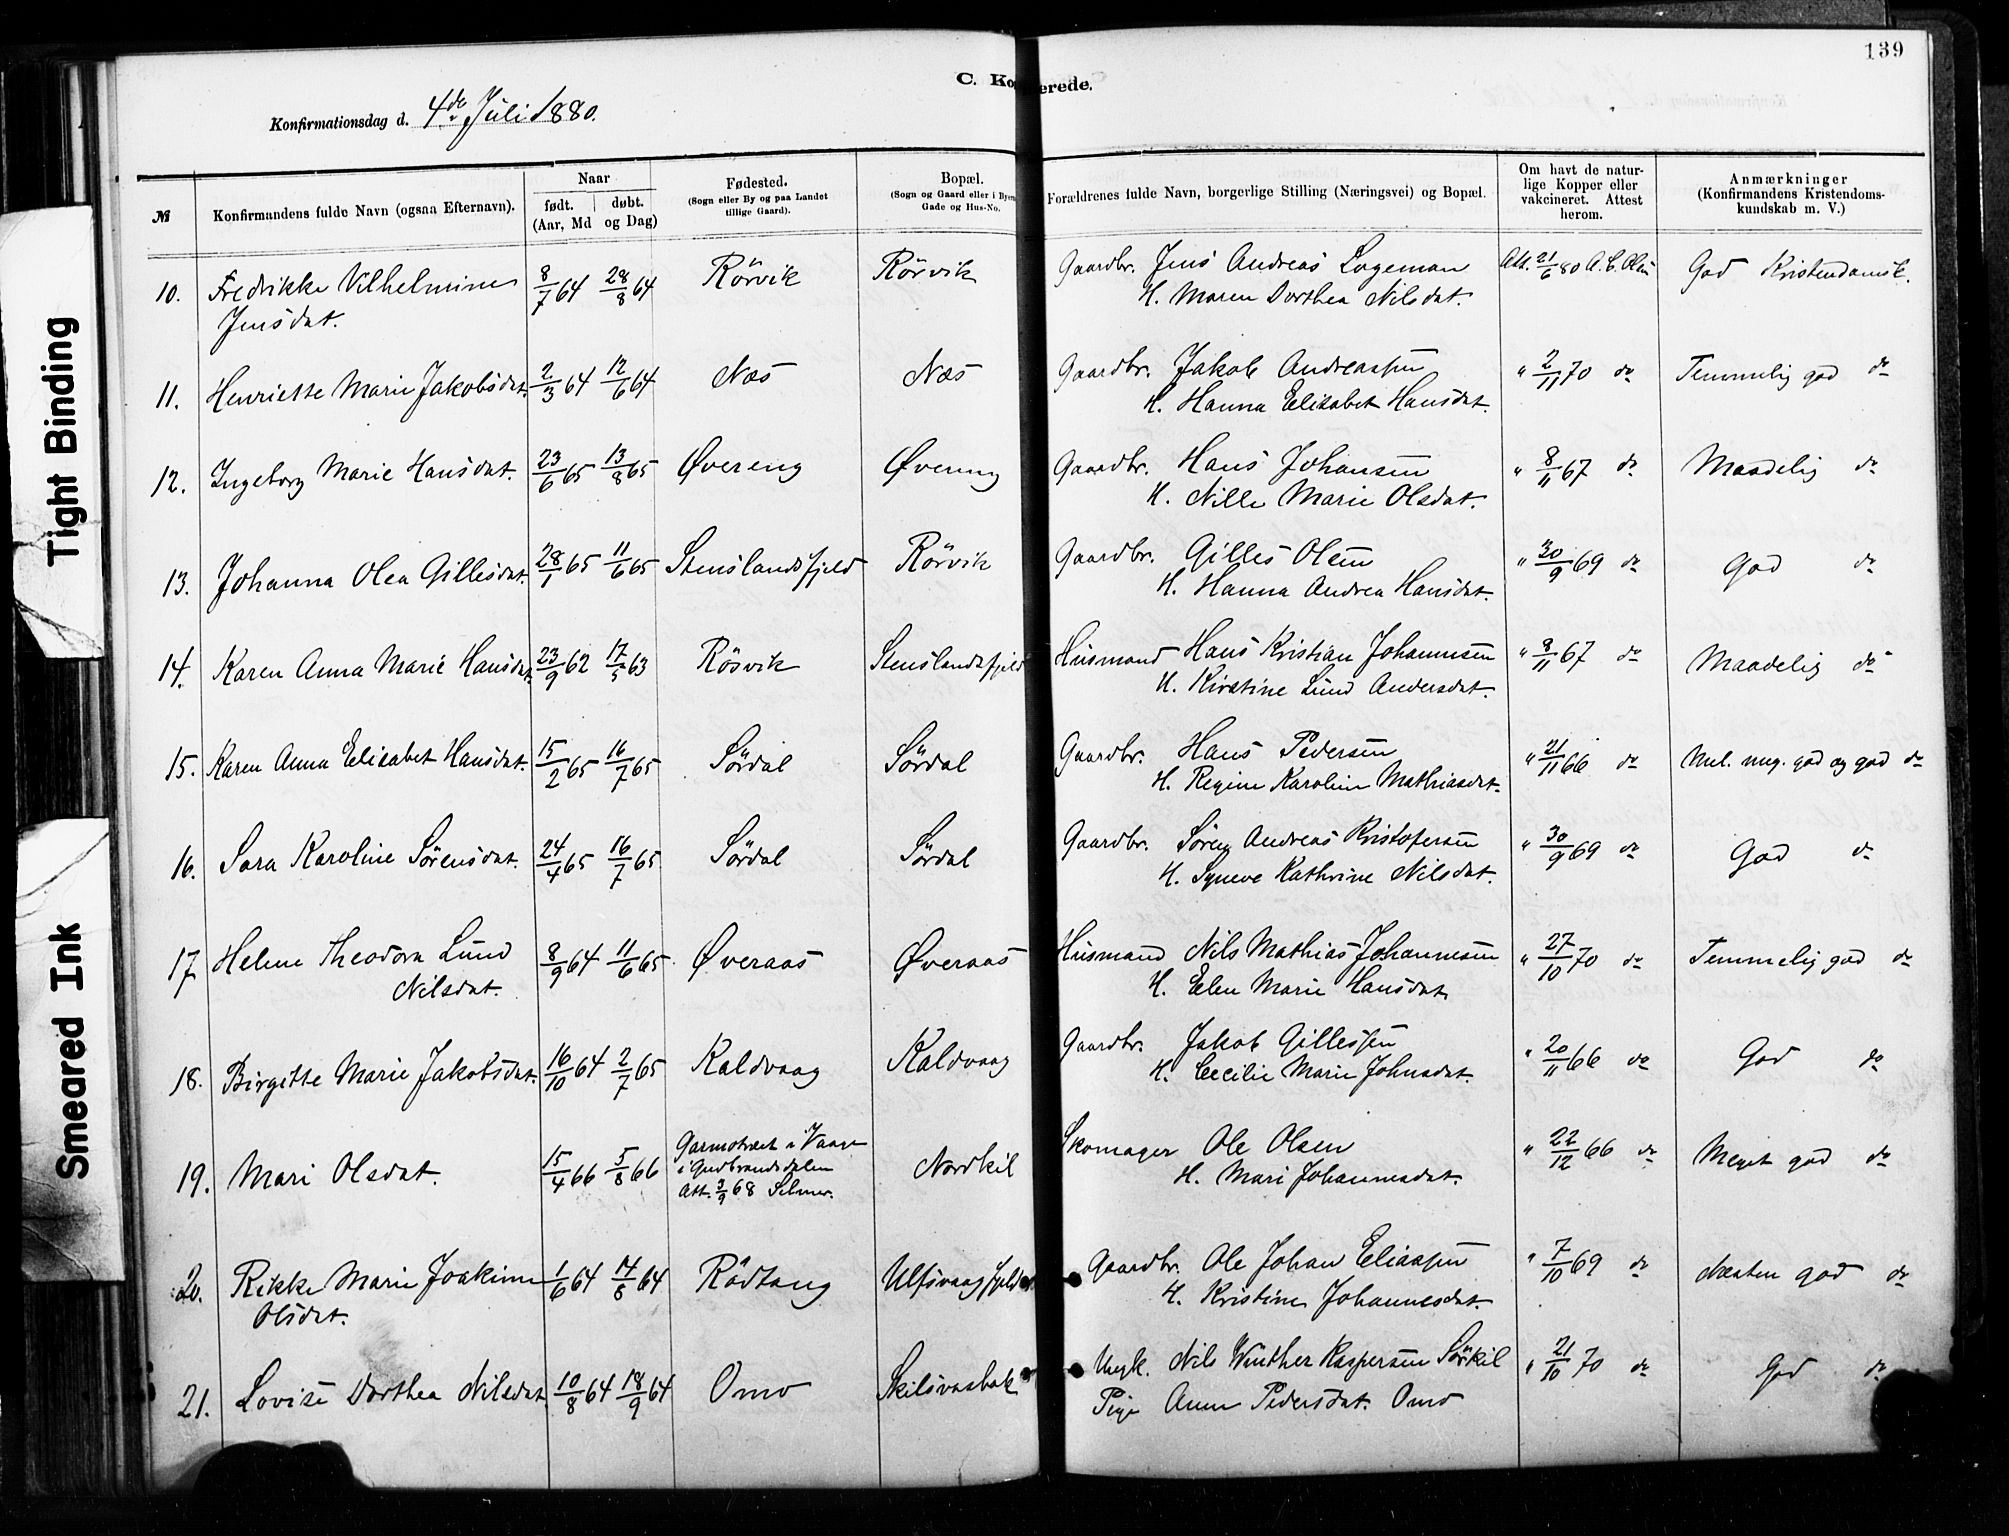 139
C. Ko
erede.
Konfirmationsdag d. 4de Juli 1880.
№
Konfirmandens fulde Navn (ogsaa Efternavn).
Naar
født. døbt.
(Aar, Md og Dag)
Fødested.
(Sogn eller By og paa Landet
tillige Gaard).
Bopæl.
(Sogn og Gaard eller i Byern
Gade og Hus-No.
Forældrenes fulde Navn, borgerlige Stilling (Næringsvei) og Bopæl.
Om havt de natur-
lige Kopper eller
vakcineret. Attest
herom.
Anmærkninger
(Konfirmandens Kristendoms-
kundskab m. V.)
10. Fredrikke Vilhelmine 8/7 64 28/8 64 Rörvik Rörvik Gaardbr. Jens Andreas Lageman Att. 21/6 80 A. C. God Kristendomsk.
Jensdat. H. Maren Dorthea Nilsdat.
11. Henriette Marie Jakobsdat. 2/3 64 12/6 64 Næs Næs Gaardbr. Jakob Andreassen " 2/11 70 do Temmelig god do
H. Hanna Elisabet Hansdat.
12. Ingeborg Marie Hansdat. 23/6 65 13/8 65 Övereng Övereng Gaardbr. Hans Johansen " 8/11 67 do Maadelig do
H. Nille Marie Olsdat.
13. Johanna Olea Gillesdat. 28/1 65 11/6 65 Stenslandsfjeld Rörvik Gaardbr. Gilles Olsen " 30/9 69 do God do
H. Hanna Andrea Hansdat.
14. Karen Anna Marie Hansdat. 23/9 62 17/5 63 Rösvik Stenslandsfjeld Husmand Hans Kristian Johannesen " 8/11 67 do Maadelig do
H. Kirstine Lund Andersdat.
15. Karen Anna Elisabet Hansdat. 15/2 65 16/7 65 Sördal Sördal Gaardbr. Hans Pedersen " 21/11 66 do Mel. meg. god og god do
H. Regine Karoline Mathiasdat.
16. Sara Karoline Sörensdat. 24/4 65 16/7 65 Sördal Sördal Gaardbr. Sören Andreas Kristofersen " 30/9 69 do God do
H. Syneve Kathrine Nilsdat.
17. Helene Theodora Lund 8/9 64 11/6 65 Øveraas Øveraas Husmand Nils Mathias Johannesen " 27/10 70 do Temmelig god do
Nilsdat. H. Elen Marie Hansdat.
18. Birgitte Marie Jakobsdat. 16/10 64 2/7 65 Kaldvaag Kaldvaag Gaardbr. Jakob Gillessen " 20/11 66 do God do
H. Cecilie Marie Johnsdat.
19. Mari Olsdat. 15/4 66 5/8 66 Garmotræet i Vaage Nordkil Skomager Ole Olsen " 22/12 66 do Meget god do
i Gudbrandsdalen H. Mari Johannesdat.
Att. 3/9 68
20. Rikke Marie Joakime 1/6 64 14/8 64 Rödtang Ulfsvaag fjeld Gaardbr. Ole Johan Eliassen " 7/10 69 do Næsten god do
Olsdat. H. Kristine Johannesdat.
21. Lovise Dorthea Nilsdat. 10/8 64 18/9 64 Omo Skilsvasbak Ungk. Nils Winther Kaspersen Sörkil " 21/10 70 do God do
Pige Anne Pedersdat. Omo
Tight Binding
Smeared Ink